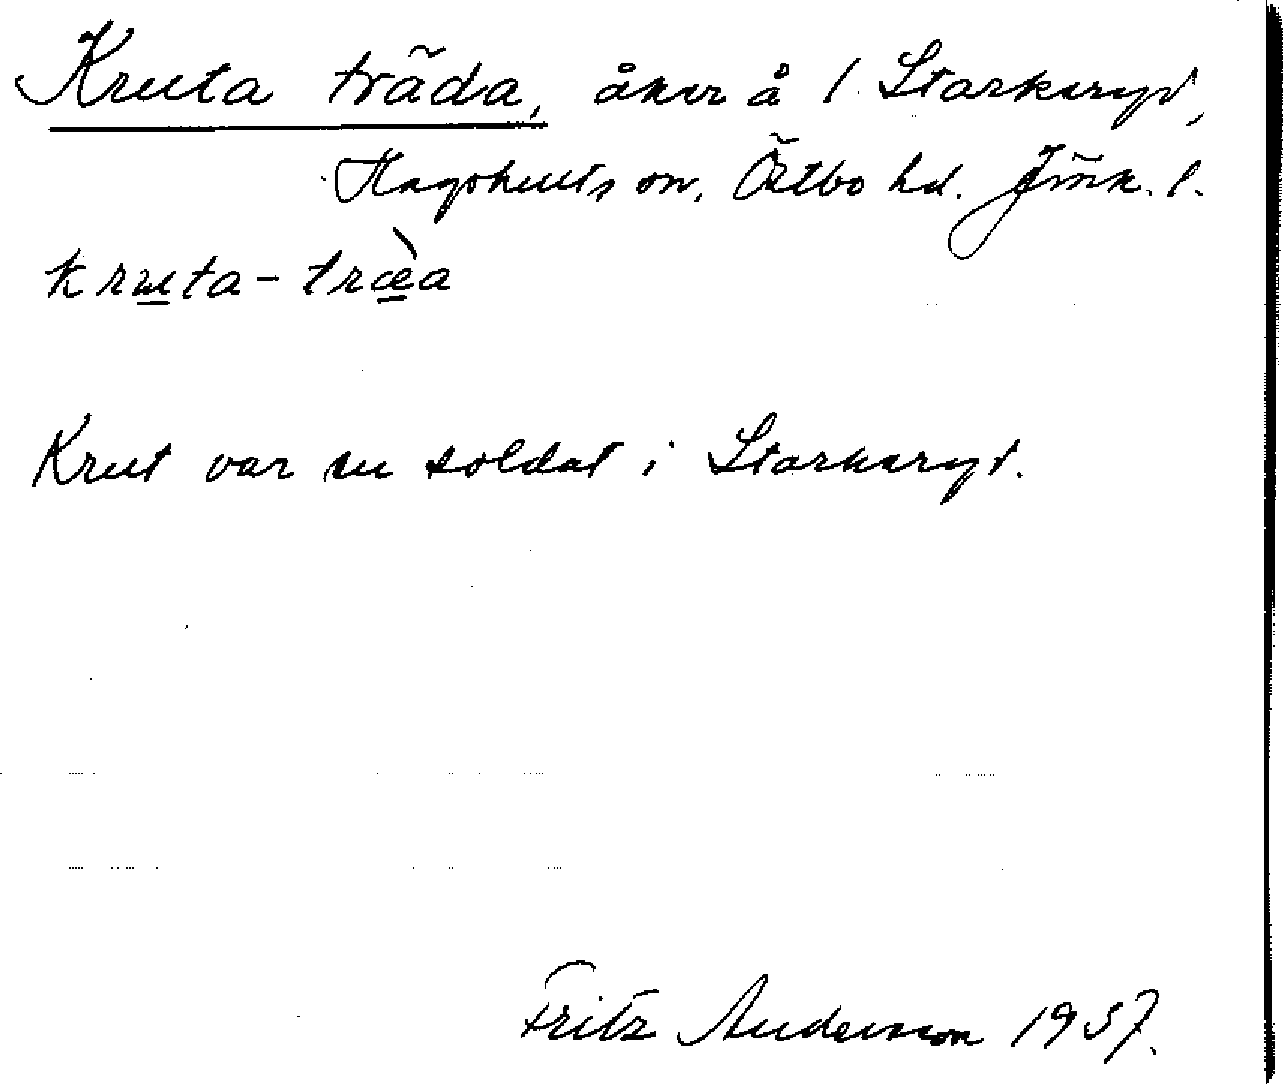 Kruta träda, åker å 1 Starkeryd,
Hagshults sn, Östbo hd. Jönk. l.
kruta-træ̀a
Krut var en soldat i Starkeryd.
Fritz Andersson 1937.